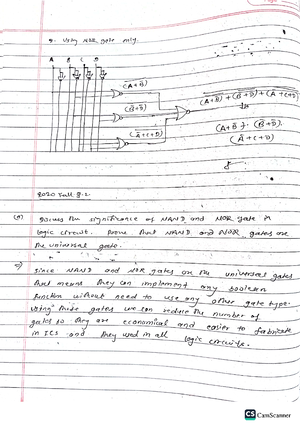 9. Using NOR gate only.
A B C D
(A+B̄)
(B̄+D)
(Ā+C+D)
(A+B̄) + (B̄+D) + (Ā+C+D)
(A+B̄) · (B̄+D).
(Ā+C+D)
2020 Fall Q.2
(a) Discuss the significance of NAND and NOR gate in
logic circuit. Prove that NAND and NOR gates are
the universal gate.
⇒ Since NAND and NOR gates are the universal gates
that means they can implement any boolean
function without need to use any other gate type.
Using these gates we can reduce the number of
gates so they are economical and easier to fabricate
in ICs and they used in all logic circuits.
CS CamScanner